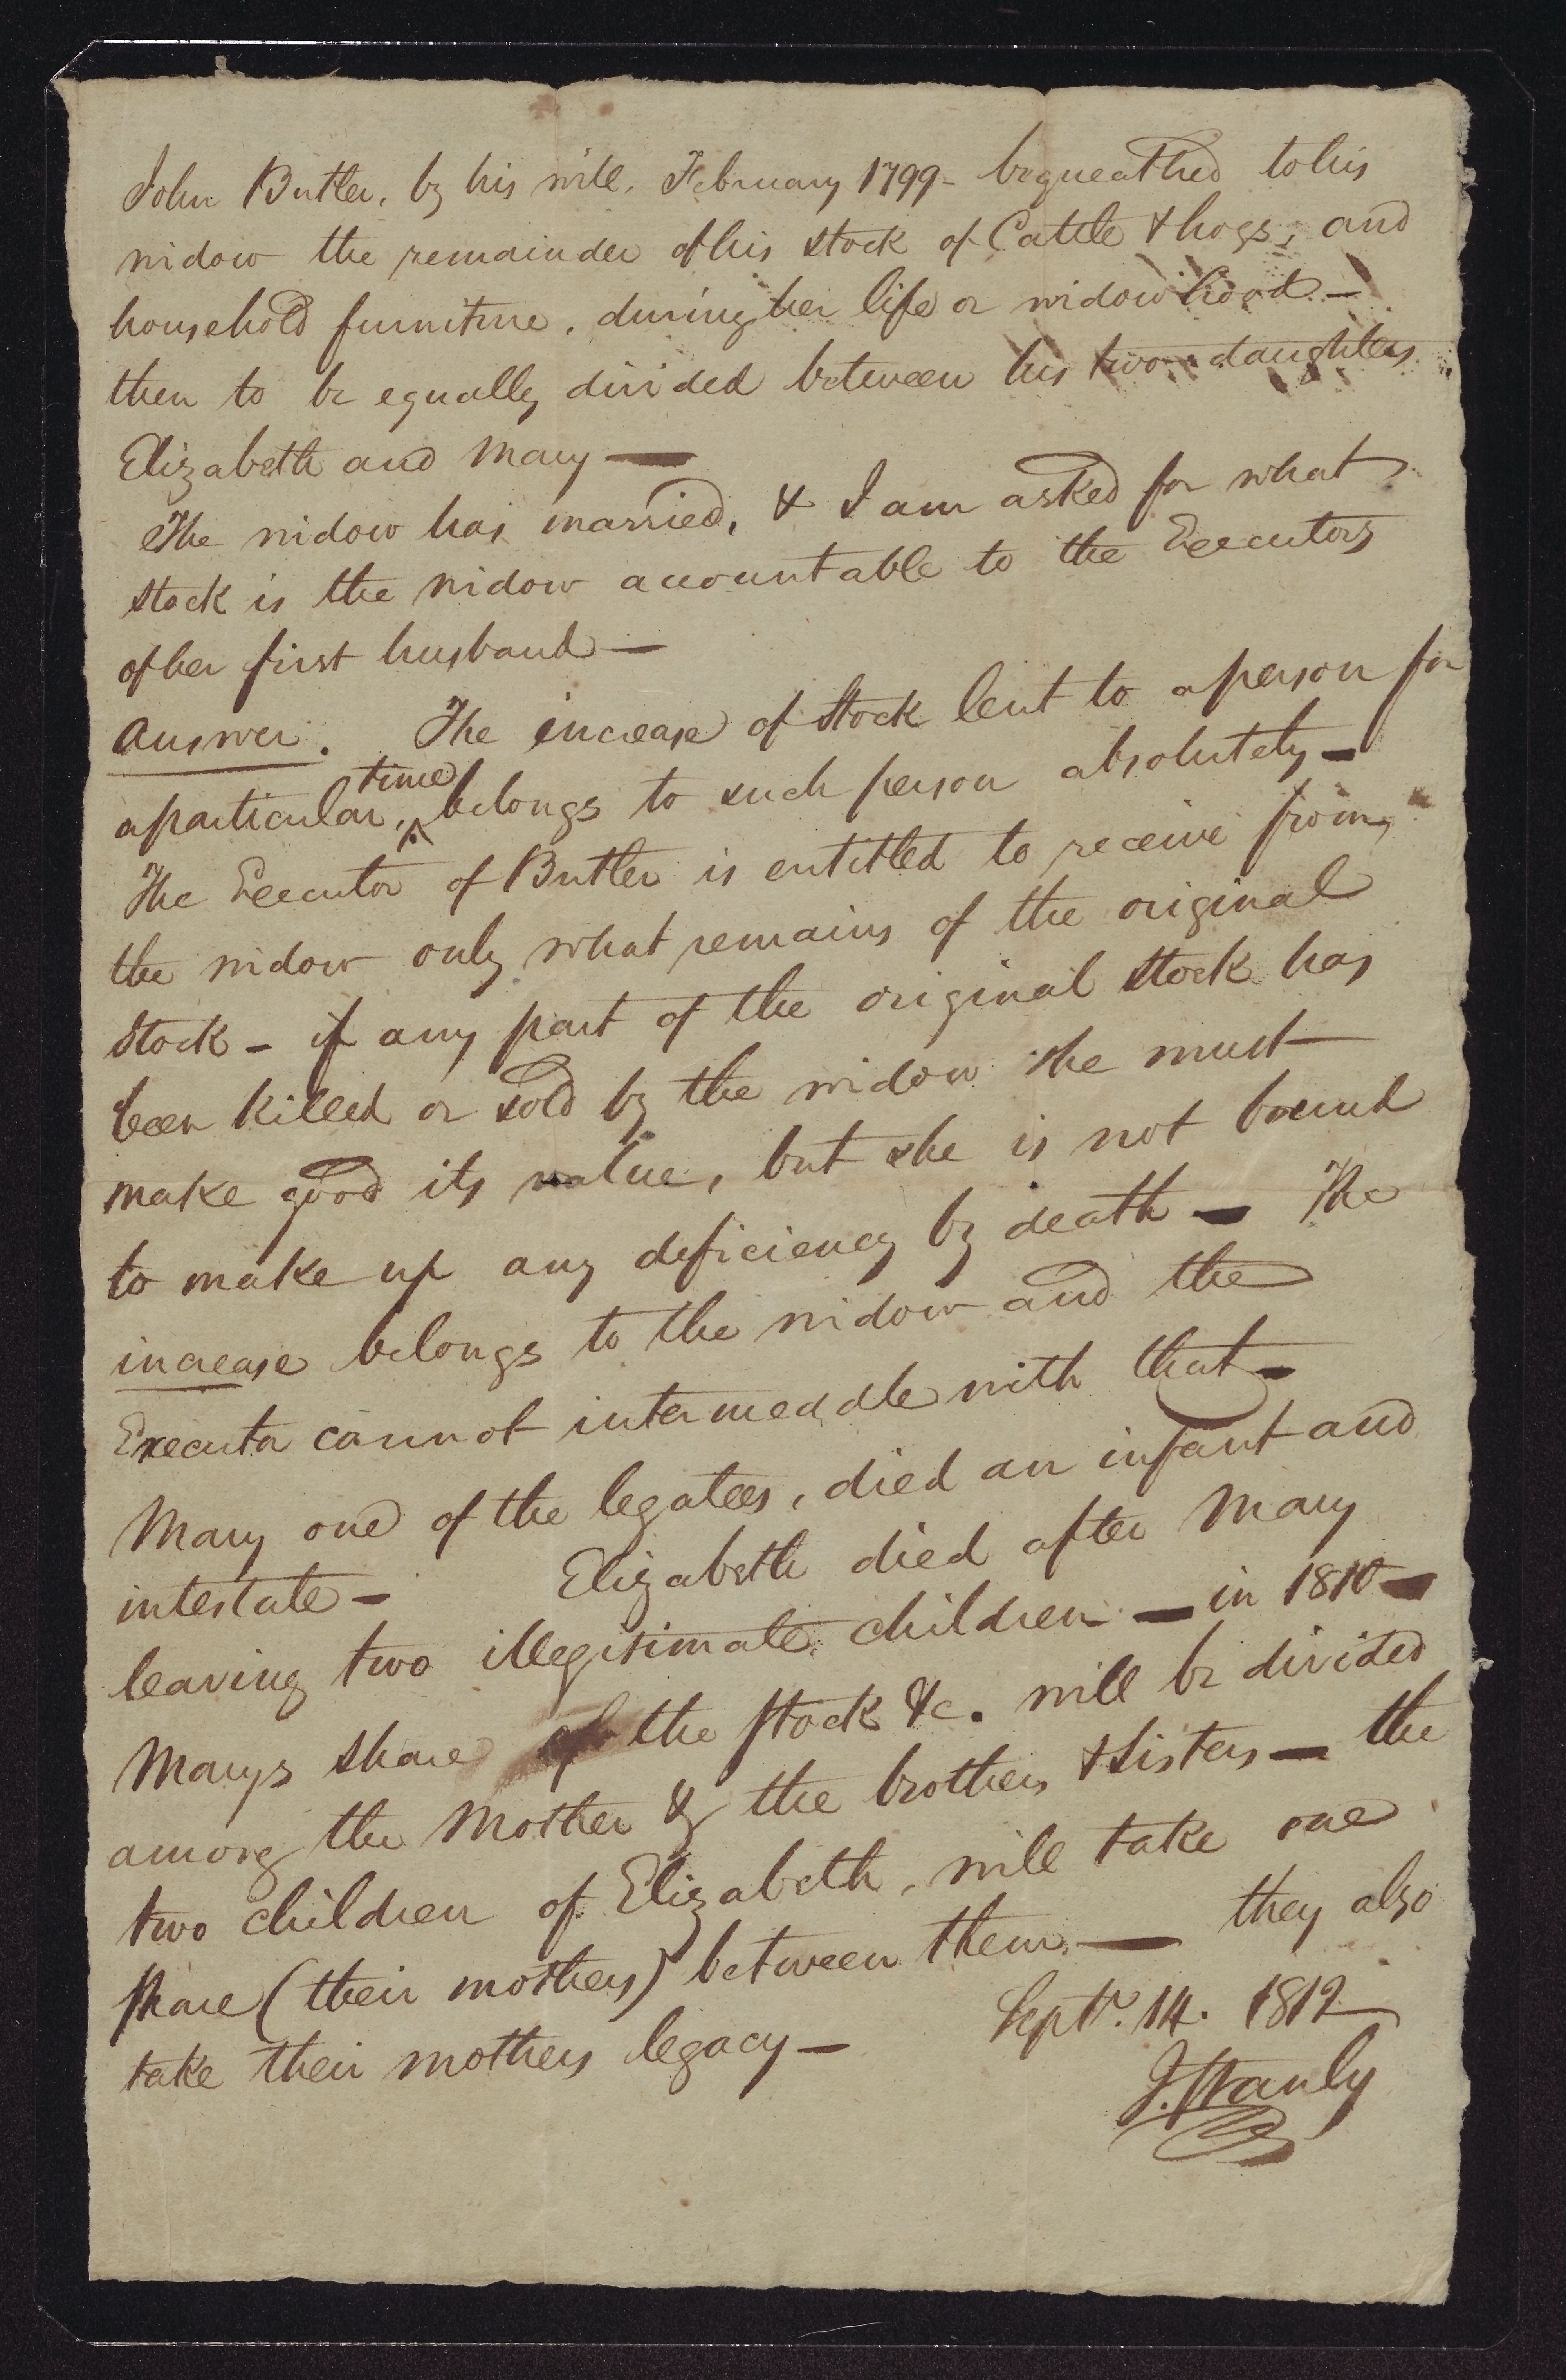 John Butler, by his will, February 1799 - bequeathed to his
widow the remainder of his stock of Cattle & hogs, and
household furniture, during her life or widowhood. —
then to be equally divided between his two daughters
Elizabeth and Mary —
The widow has married, & I am asked for what
stock is the widow accountable to the Executors
of her first husband —
Answer. The increase of Stock lent to a person for
time
a particular, ^ belongs to such person absolutely —
The Executor of Butler is entitled to receive from
the widow only what remains of the original
Stock - if any part of the original stock has
been killed or sold by the widow she must
make good its value, but she is not bound
to make up any deficiency by death — The
increase belongs to the widow and the
Executor cannot intermeddle with that —
Mary one of the legatees, died an infant and
intestate — Elizabeth died after Mary
leaving two illegitimate children — in 1810 —
Marys share of the stock &c. will be divided
among the Mother & the brothers & Sisters — the
two children of Elizabeth, will take one
share (their mothers) between them. — they also
take their mothers legacy —
Septr. 14. 1812
J. Stanly